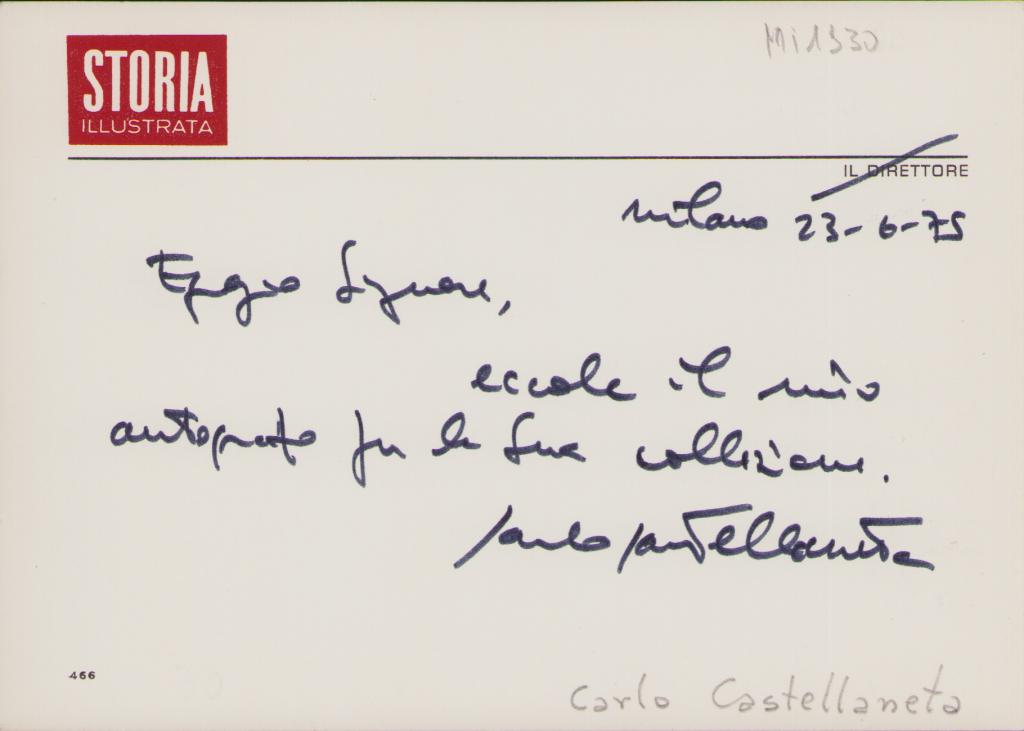 STORIA
ILLUSTRATA
Mi 1930
IL DIRETTORE
Milano 23-6-75
Egregio Signore,
eccole il mio
autografo per la Sua collezione.
Carlo Castellaneta
466
Carlo Castellaneta